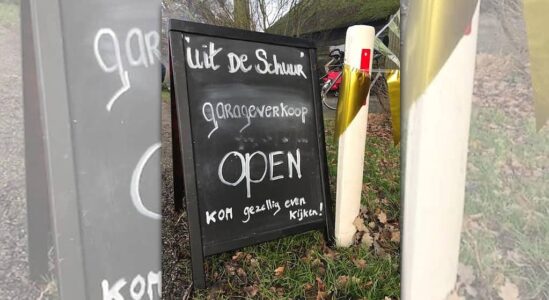 uit De Schuur
garageverkoop
open
kom gezellig even
kijken!